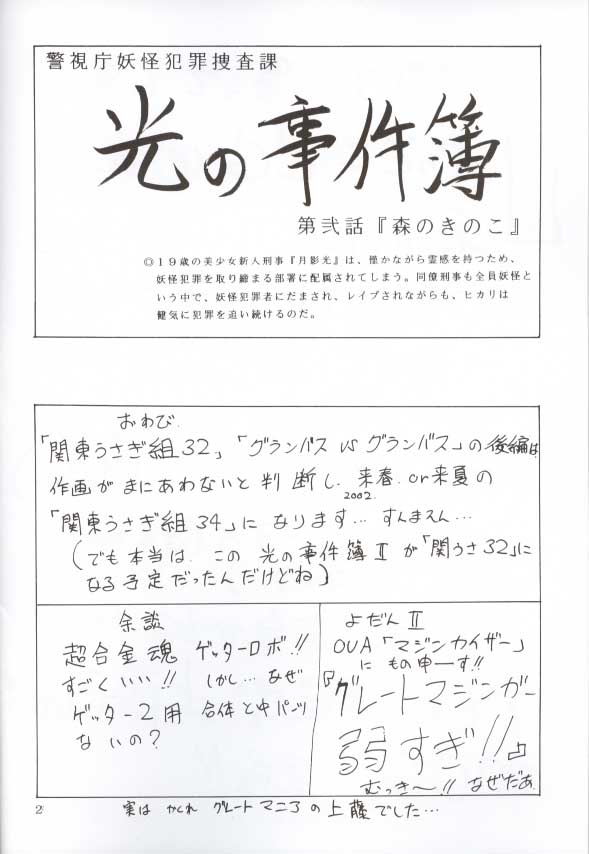 警視庁妖怪犯罪捜査課
光の事件簿
第弐話『森のきのこ』
◎19歳の美少女新人刑事『月影光』は、僅かながら霊感を持つため、
妖怪犯罪を取り締まる部署に配属されてしまう。同僚刑事も全員妖怪と
いう中で、妖怪犯罪者にだまされ、レイプされながらも、ヒカリは
健気に犯罪を追い続けるのだ。
おわび
「関東うさぎ組32」「グランバス VS グランバス」の後編は
作画がまにあわないと判断し、来春.or来夏の
2002.
「関東うさぎ組34」になります… すんまえん…
(でも本当は、この光の事件簿Ⅱが「関うさ32」に
なる予定だったんだけどね)
余談
超合金魂 ゲッターロボ!!
すごくいい!! しかし… なぜ
ゲッター2用 合体と中パンツ
ないの?
よだんⅡ
OVA「マジンカイザー」
にもの申ーす!!
『グレートマジンガー
弱すぎ!!』
むっき〜!! なぜだぁ
2
実は かくれ グレートマニアの上藤でした…